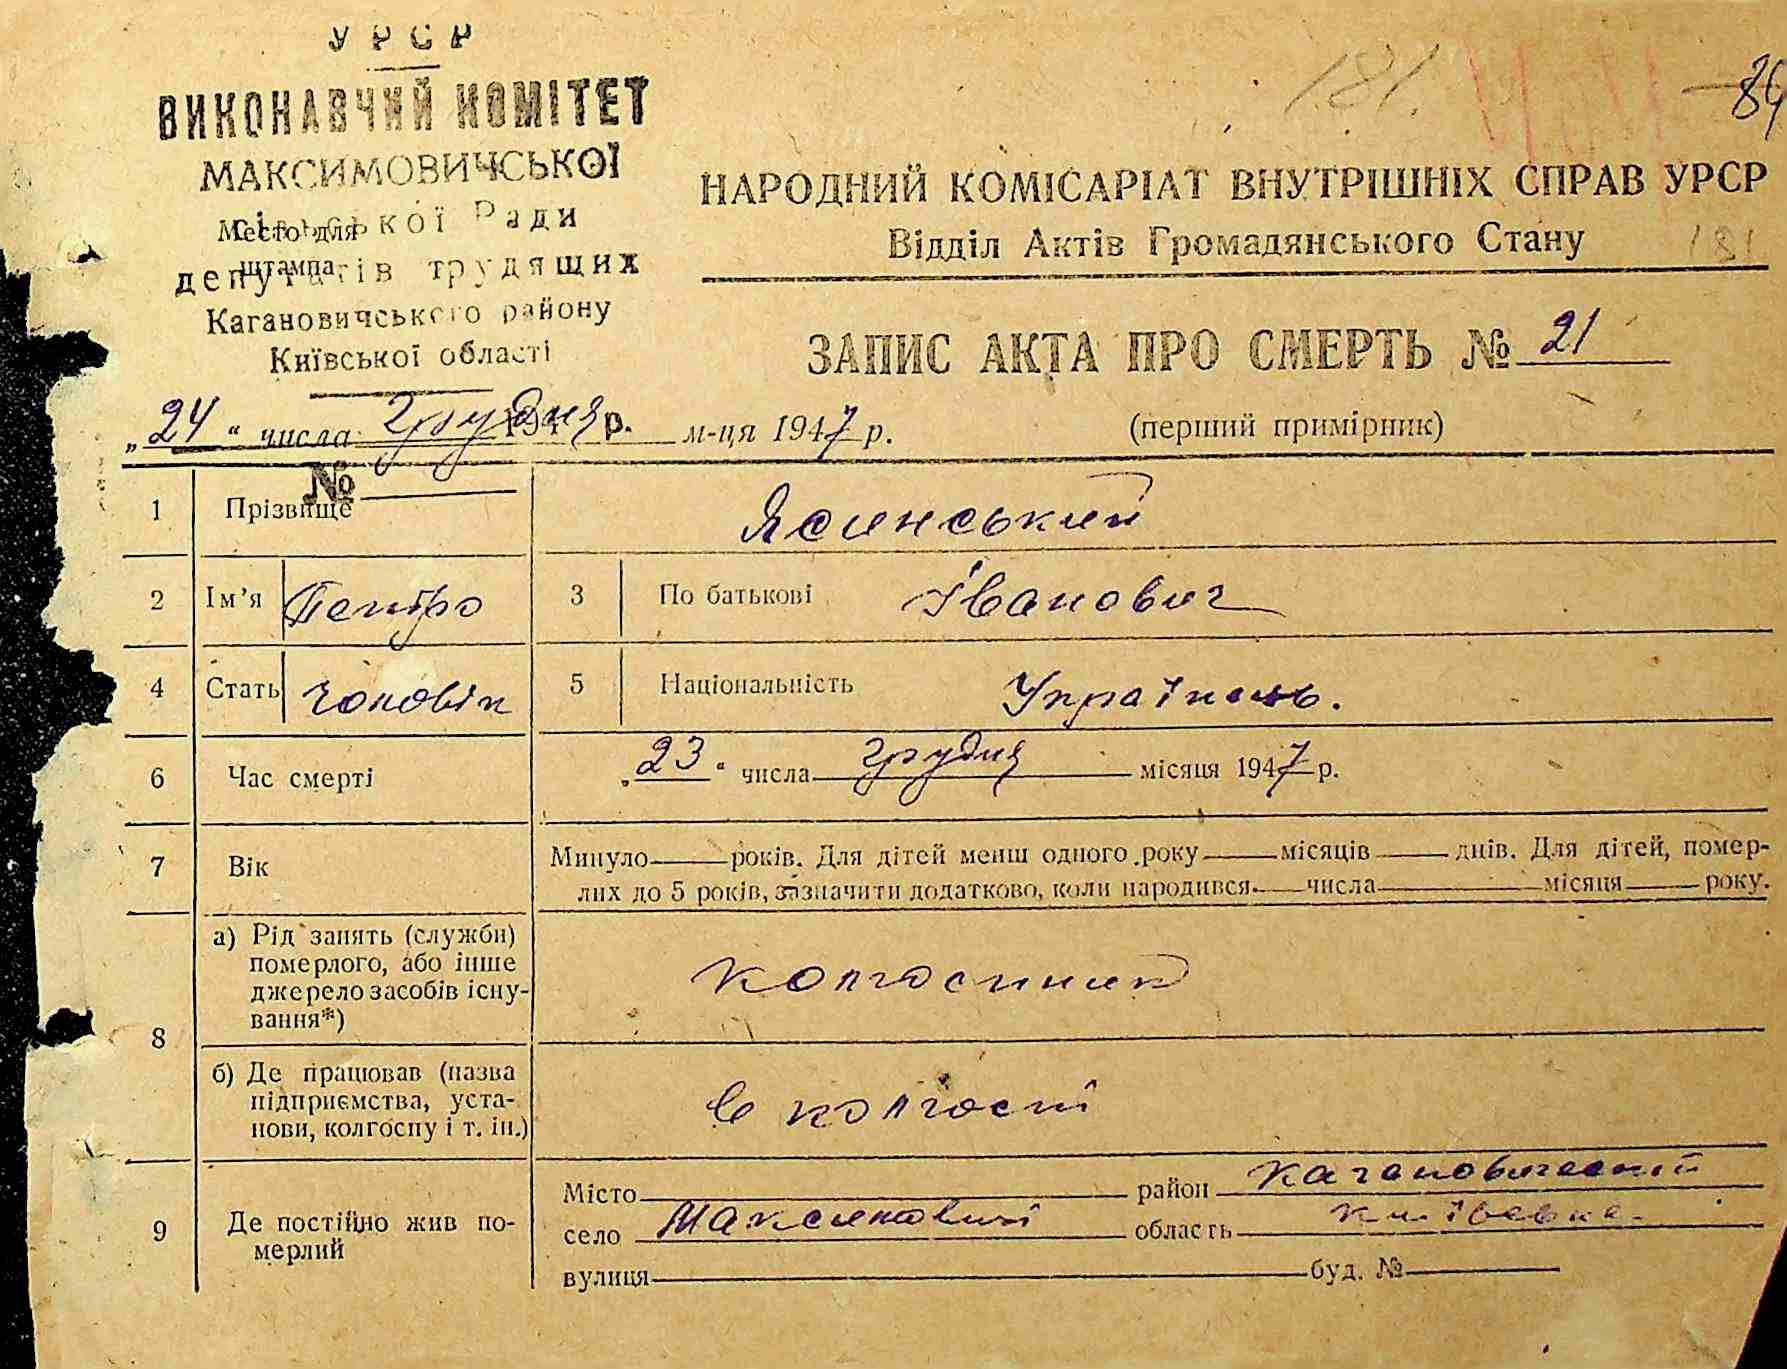 УРСР
ВИКОНАВЧИЙ КОМІТЕТ
МАКСИМОВИЧСЬКОЇ
сільської Ради
Место для
депутатів трудящих
штампа
Кагановичського району
Київської області
194 р.
№
181.
84
НАРОДНИЙ КОМІСАРІАТ ВНУТРІШНІХ СПРАВ УРСР
Відділ Актів Громадянського Стану
181
ЗАПИС АКТА ПРО СМЕРТЬ № 21
„24“ числа грудня м-ця 1947 р. (перший примірник)
1 Прізвище Ясинський
2 Ім’я Петро 3 По батькові Іванович
4 Стать Чоловік 5 Національність Українець.
6 Час смерті „23“ числа грудня місяця 1947 р.
7 Вік Минуло років. Для дітей менш одного року місяців днів. Для дітей, помер-
лих до 5 років, зазначити додатково, коли народився числа місяця року.
8 а) Рід занять (служби)
померлого, або інше
джерело засобів існу-
вання*)
колгоспник
б) Де працював (назва
підприємства, уста-
нови, колгоспу і т. ін.)
в колгоспі
9 Де постійно жив по-
мерлий
Місто район Кагановический
село Максимовичі область Київська
вулиця буд. №